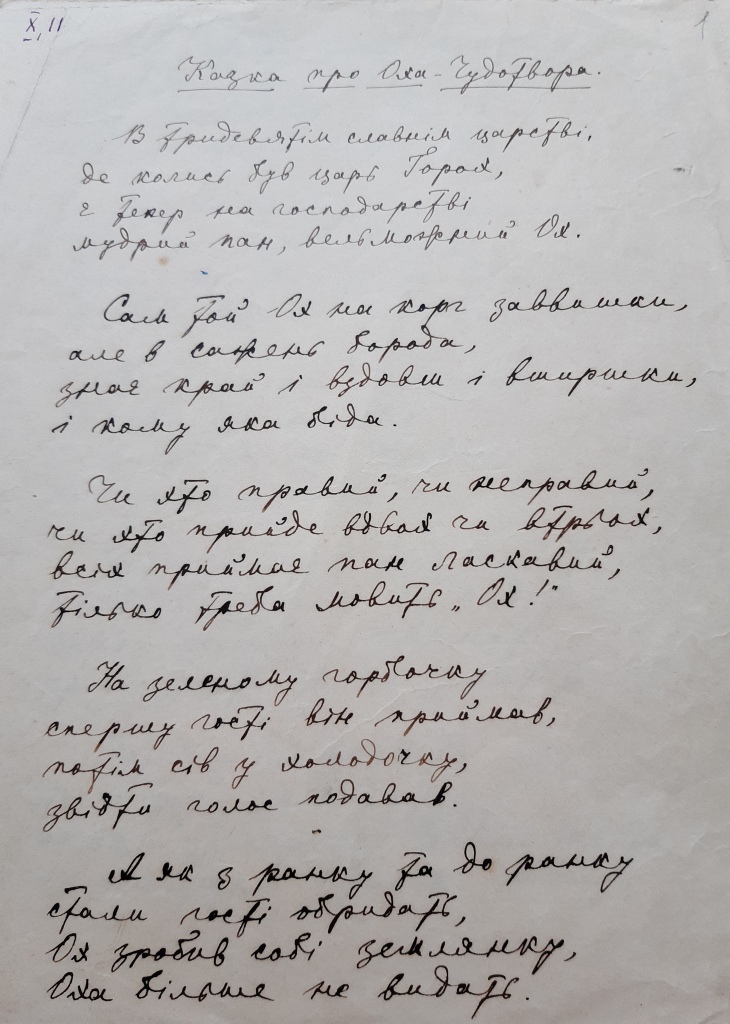 X, 11
1
Казка про Оха-Чудотвора.
В тридевятім славнім царстві,
де колись був царь Горох,
є тепер на господарстві
мудрий пан, вельможний Ох.
Сам той Ох на корх заввишки,
але в сажень борода,
знає край і вздовж і вширшки,
і кому яка біда.
Чи хто правий, чи неправий,
чи хто прийде вдвох чи втрьох,
всіх приймає пан ласкавий,
тілько треба мовить „Ох!"
На зеленому горбочку
спершу гості він приймав,
потім сів у холодочку,
звідти голос подавав.
А як з ранку та до ранку
стали гості обридать,
Ох зробив собі землянку,
Оха більше не видать.